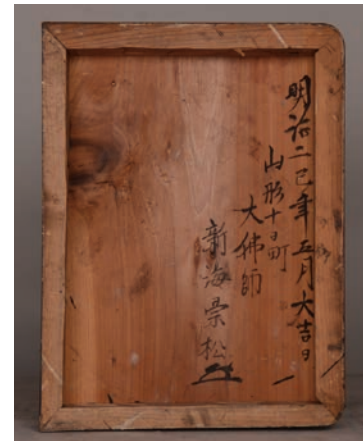 明治二巳年五月大吉日
山形十日町
大佛師
新海宗松